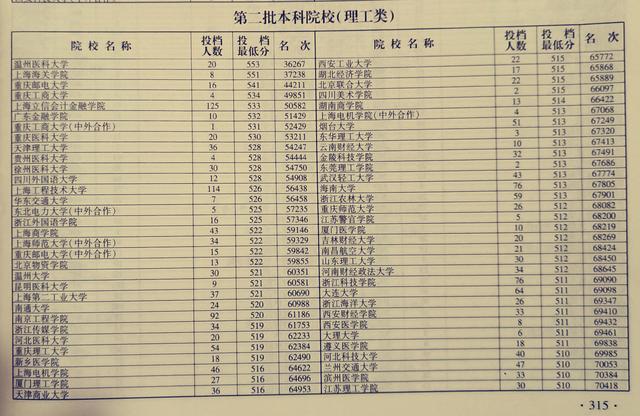 第二批本科院校(理工类)
院校名称 投档人数 投档最低分 名次
温州医科大学 20 553 36267
上海海关学院 8 551 37238
重庆邮电大学 16 541 44211
重庆工商大学 4 534 49851
上海立信会计金融学院 125 533 50582
广东金融学院 10 532 51429
重庆工商大学(中外合作) 1 531 52429
重庆医科大学 20 530 53211
天津理工大学 36 528 54247
贵州医科大学 4 528 54444
徐州医科大学 30 528 54750
四川外国语大学 12 528 54908
上海工程技术大学 114 526 56438
华东交通大学 7 526 56458
东北电力大学(中外合作) 5 525 57235
浙江外国语学院 16 525 57346
上海商学院 43 522 59146
上海师范大学(中外合作) 34 522 59329
重庆邮电大学(中外合作) 15 522 59842
北京物资学院 13 522 59855
温州大学 30 521 60351
昆明医科大学 9 521 60581
上海第二工业大学 37 521 60690
南通大学 24 520 60988
南京工程学院 92 520 61186
浙江传媒学院 34 519 61753
河北医科大学 20 519 62233
重庆理工大学 54 519 62384
新乡医学院 18 519 62490
上海电机学院 46 516 64622
厦门理工学院 27 516 64696
天津商业大学 36 516 64953
院校名称 投档人数 投档最低分 名次
西安工业大学 22 515 65772
湖北经济学院 17 515 65868
北京联合大学 22 515 65889
四川美术学院 2 515 66097
湖南商学院 13 514 66422
上海电机学院(中外合作) 4 513 67068
烟台大学 51 513 67249
东华理工大学 3 513 67320
云南财经大学 10 513 67413
金陵科技学院 32 513 67491
东莞理工学院 2 513 67686
武汉轻工大学 43 513 67774
海南大学 76 513 67805
浙江农林大学 59 513 67901
重庆师范大学 26 512 68082
江苏警官学院 5 512 68200
厦门医学院 10 512 68219
吉林财经大学 20 512 68269
南昌航空大学 21 512 68424
山东理工大学 30 512 68450
河南财经政法大学 34 512 68645
浙江科技学院 76 511 69090
大连大学 64 511 69098
浙江海洋大学 26 511 69347
西安财经学院 33 511 69410
西安医学院 8 511 69432
大理大学 6 511 69461
遵义医学院 18 511 69838
河北科技大学 40 510 69985
兰州交通大学 47 510 70053
滨州医学院 33 510 70384
江苏理工学院 30 510 70418
·315·